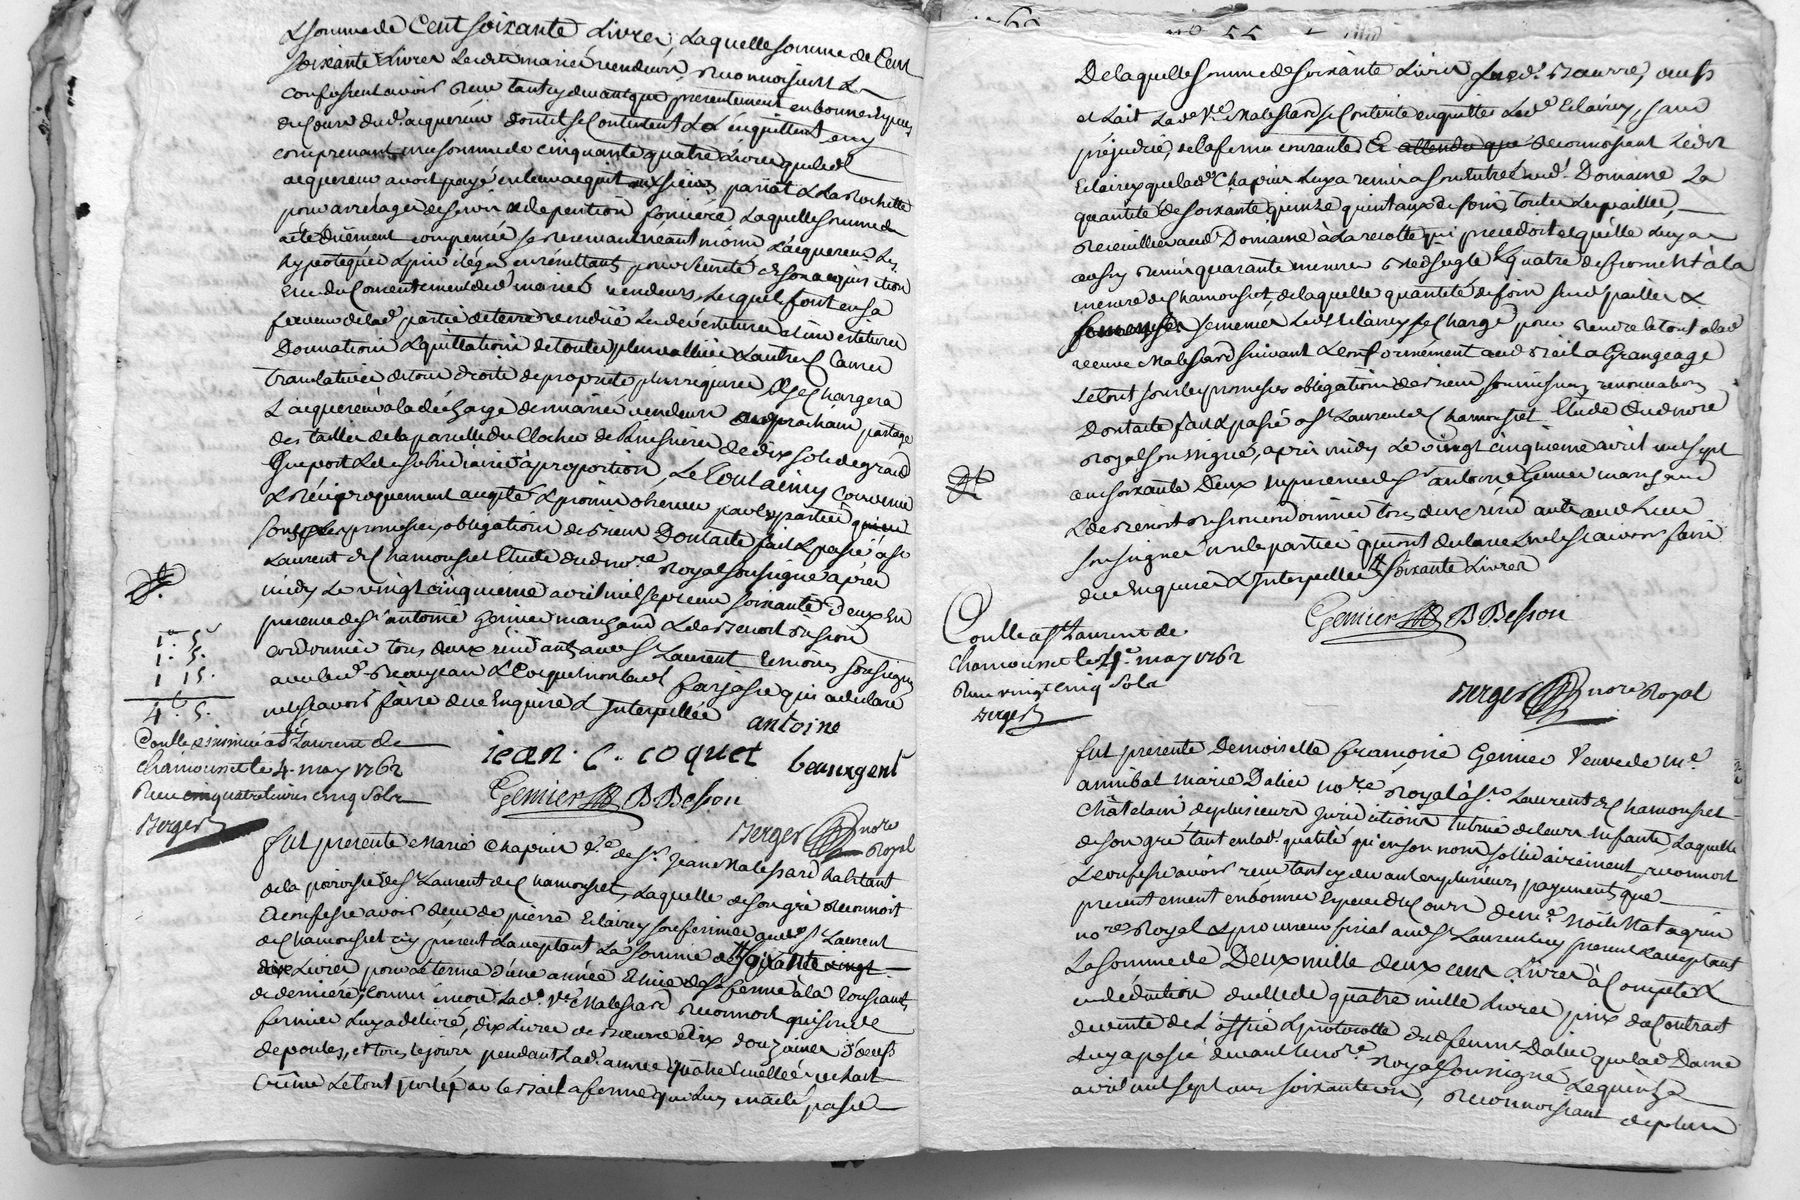 La somme de Cent soixante Livres, Laquelle somme de Cent
soixante Livres Lesdits mariés vendeurs reconnoissent &
confessent avoir reçu tant cy devant que présentement en bonnes Espèces
du Cours dud. acquereur dont il se Contentent & L'enquittent en y
comprenant une somme de cinquante quatre Livres que led
acquereur avoit payé en leur acquit aux sieurs pariat & La Rochette
pour arrerages de servis & de pention foncière Laquelle somme
a été duëment compensée, se reservant néant moins L'acquereur Les
hypoteques & privilèges en résultants pour sureté de son acquisition
Et ce du Consentement desd mariés vendeurs, Lesquels font en sa
faveur de lad. partie de terre vendue Les devestitures et investitures
Donnations & quittations de toutes plus vallües & autres Clauses
translatives de tous droits de propriété plus requises & se Chargera
L'acquereur à la décharge des mariés vendeurs au prochain partage
des tailles de la parcelle du Clocher de de dix sols de grand
que port & de subsidiaires à proportion, Le Tout ainsy Convenu
& réciproquement accepté & promis observer par les parties
sous les promesses, obligations de biens Dont acte fait & passé à St
Laurent de Chamousset Etude dud no.re Royal soussigné après
midy Le vingt cinquieme avril mil sept cens soixante Deux En
presence de Sr antoine Genier marchand & de Benoit Besson
cordonnier tous deux residants aud St Laurent témoins soussignés
avec led. Beaujean & Coquet non lad farjasse qui a declaré
ne le sçavoir faire de ce Enquise & Interpellée antoine
jean. C. coquet beaurgent
Genier B Besson
Berger no.re Royal
1.# 5.s
1. 5.
1 15.
4.# 5.
Conlle & insinué à St Laurent de
Chamousset le 4. may 1762
Reçu quatre livres cinq Sols
Berger
fut presente Marie Chapuis v.e de Sr. Jean Malessard habitant
de la paroisse de St Laurent de Chamousset, Laquelle de son gré reconnoit
& confesse avoir reçu de pierre Eclairey son fermier aud St Laurent
de Chamousset icy present & acceptant La Somme de soixante
Livres pour le terme d'une année Echue de sa ferme à la Toussaint
derniere, Comme encore Lad. v.e Malessard reconnoit que son d
fermier Luy a delivré, dix Livres de Beurre & dix douzaines d'œufs
de poules, et tous les jours pendant lad. année quatre de Lait
Crême Le tout porté par le Bail à ferme qui Luy en a été passé
De laquelle somme de soixante Livres Lesd. Beurre, œufs
et Lait Lad. v.e Malessard se Contente en quitte Led. Eclairey, sans
préjudice, de la ferme courante & attendu que reconnoissant Ledit
Eclairey que lad. Chapuis Luy a remis à son Entrée aud. Domaine La
quantité de soixante quinze quintaux de foin, toutes Les pailles,
recueillies aud Domaine à La récolte qui précedoit et qu'elle Luy a
aussy remis quarante mesures bled seigle & quatre de froment à la
mesure de Chamousset, de laquelle quantité de foin pailles &
semences Led. Eclairey se Charge pour rendre le tout à lad
veuve Malessard suivant & conformément aud Bail à Grangeage
Le tout sous les promesses obligations de biens soumissions, renonciations
Dont acte fait & passé à St Laurent de Chamousset Etude dud no.re
Royal soussigné, après midy Le vingt cinquieme avril mil sept
cens soixante Deux En presence de Sr antoine Genier marchand
& de Benoit Besson cordonnier tous deux résidants aud Lieu
soussignés non les parties qui ont declaré ne le sçavoir faire
de ce Enquises & Interpellées # soixante Livres
Genier B Besson
Conlle à St Laurent de
Chamousset le 4e. may 1762
Reçu vingt cinq Sols
Berger
Berger no.re Royal
fut presente Demoiselle françoise Genier Veuve de M.e
annibal Marie Dalier no.re Royal à St. Laurent de Chamousset
Châtelain de plusieurs juridictions tutrice de leurs Enfants, Laquelle
de son gré tant en lad. qualité qu'en son nom sollidairement, reconnoit
& confesse avoir reçu tant cy devant en plusieurs payements que
présentement en bonnes Espèces du Cours de M.e Noël Matagrin
no.re Royal & procureur fiscal aud St Laurent icy present & acceptant
La somme de Deux mille deux cens Livres à Compte &
en déduction de celle de quatre mille Livres, prix du Contrat
de vente de L'office & protocolle dud defunt Dalier que lad Dame
Luy a passé devant le no.re Royal soussigné Le quinze
avril mil sept cens soixante un, reconnoissant de plus